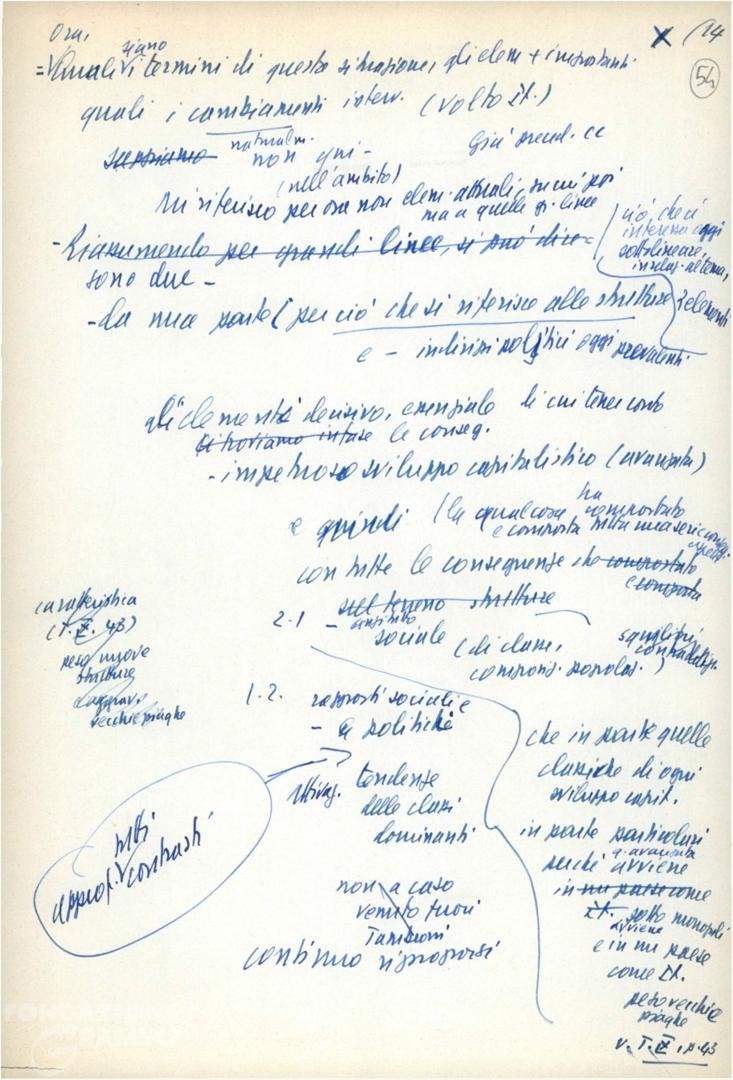 Ora, siano
X (14
54
= Quali i termini di questa situazione, gli elem + importanti
quali i cambiamenti interv. (volto It.)
naturalm. già preced. ce
non qui -
(nell'ambito)
Mi riferisco per ora non elem. attuali, su cui poi
ma a quelle gr. linee
- Riassumendo per grandi linee, si può dire =
ciò, che ci
interessa oggi
sottolineare,
in relaz. al tema,
sono due -
- da una parte (per ciò che si riferisce alle strutture 2 elementi
e - indirizzi politici oggi prevalenti
gli elementi decisivo, essenziale di cui tener conto
le conseg.
- impetuoso sviluppo capitalistico (avanzata)
e quindi (la qual cosa ha comportato
e comporta tutta una serie
con tutte le conseguenze che comportato
e comporta
sul terreno strutture
2.1 -
sociale (di classe,
composiz. popolaz.)
squilibri,
contraddiz.
caratteristica
(T. X. 43)
peso nuove
strutture
aggrav.
vecchie piaghe
1.2. rapporti sociali e
- e politiche
tendenze
delle classi
dominanti
tutti
approf. contrasti
non a caso
venuto fuori
Tambroni
continuo riproporsi
che in parte quelle
classiche di ogni
sviluppo capit.
in parte particolari
perché avviene
q. avanzata
in un paese come
It. sotto monopoli
avviene
e in un paese
come It.
peso vecchie
piaghe
v. T. IX, p. 43